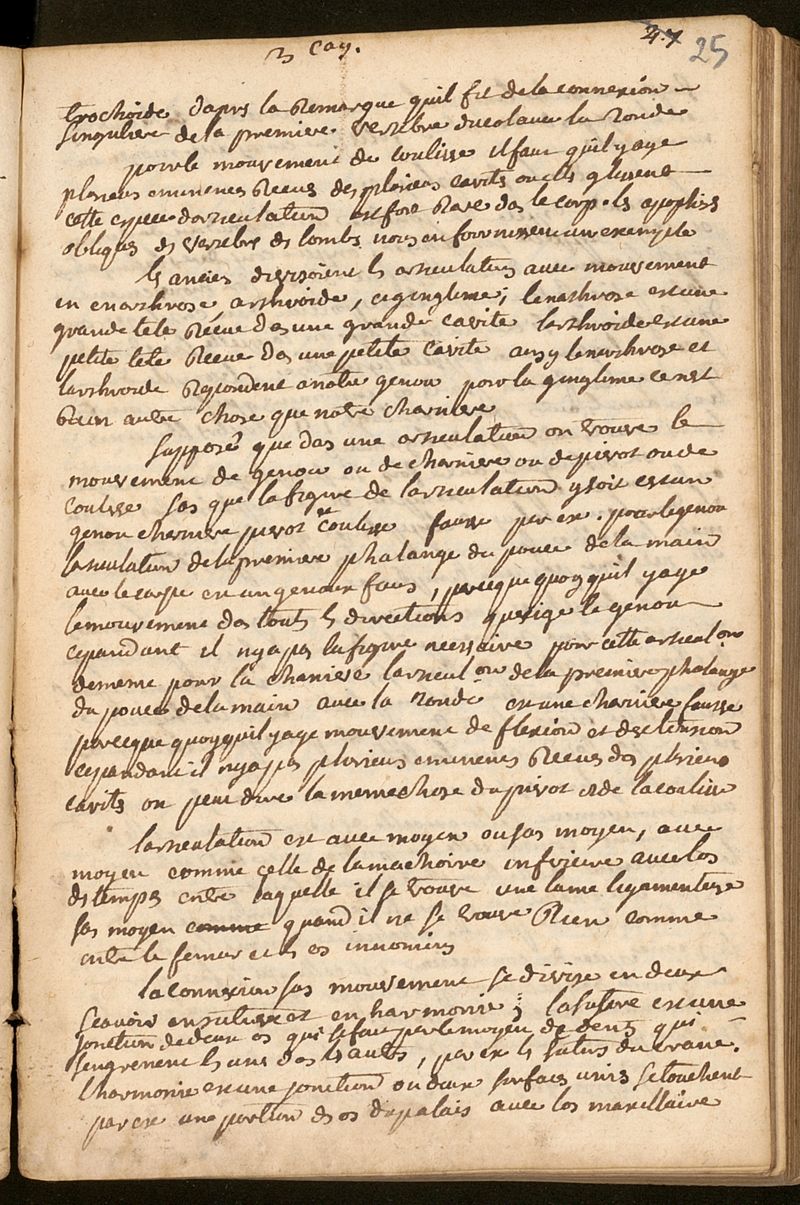 3 cay.
47 25
trochoide dapres la Remarque quil fit de la connexion
singuliere de la premiere vertebre du col avec la ronde
pour le mouvement de coulisse il faut quil y aye
plusieurs eminences Recues des plusieurs cavits ou ells glissent
cette espece darticulation est fort Rare das le corp. ls apophises
obliques ds vertebre ds lombs nous en fournissent un exemple
ls ancies divisoient ls articulations avec mouvement
en enarthrose, arthroide, et ginglime; lenarthrose est une
grande tete Recue das une grande cavite larthroide est une
petite tete Recue das une petite cavite ausy lenarthrose et
larthroide Repondent a notre genou pour la ginglime ce nest
Rien autre chose que notre charniere
supposé que das une articulation on trouve le
mouvement de genou ou de charniere ou de pivot ou de
coulisse sas que la figure de larticulation y soit est un
genou charniere pivot et coulisse fausse par ex. pour le genou
larticulation de la premiere phalange du pouce de la main
avec le carpe est un genoux faux, parceque quoyquil y aye
le mouvement das touts ls directions quexige le genou
cependant il ny a pas la figure necessaire pour cette articulon
de meme pour la charniere larticulon de la premiere phalange
du pouce de la main avec la ronde est une charniere fausse
parceque quoyquil y aye mouvement de flexion et dextension
cependant il ny a pas plusieurs eminences Recues das plusieurs
cavits on peut dire la meme chose du pivot et de la coulisse
larticulation est avec moyen ou sas moyen, avec
moyen comme celle de la machoire inferieure avec los
ds temps entre laquelle il se trouve une lame ligamenteuse
sas moyen comme quand il ne se trouve Rien comme
entre le femur et ls os innominés
la connexion sas mouvement se divise en deux
scavoir en suture et en harmonie; la suture est une
jonction de deux os qui se fait par le moyen de dents qui
sengrenent ls uns das ls autres, par ex ls sutures du crane.
lharmonie est une jonction ou deux surfaces unies se touchent
par ex une portion ds os du palais avec los maxillaire